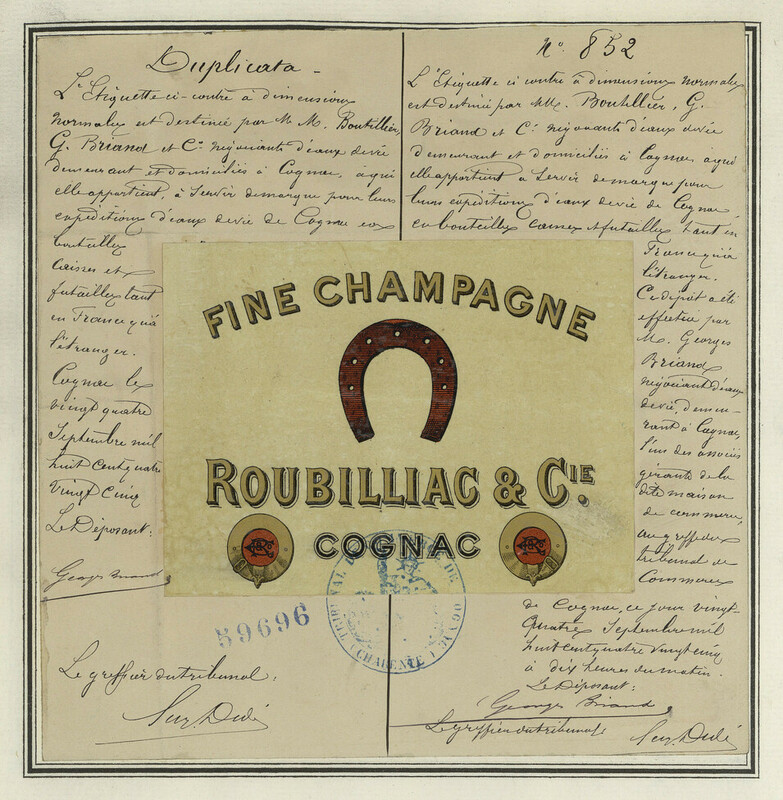 Duplicata
L'Etiquette ci-contre à dimensions
normales est destinée par M M. Boutillier,
G. Briand et Cie négociants d'eaux de vie
demeurant et domiciliés à Cognac, à qui
elle appartient, à servir de marque pour leurs
expéditions d'eaux de vie de Cognac en
bouteilles
caisses et
futailles tant
en France qu'à
l'étranger.
Cognac le
vingt quatre
Septembre mil
huit cent quatre
vingt cinq
Le Déposant:
Georges Briand
59696
Le greffier du tribunal:
No 852
L'Etiquette ci contre à dimensions normales
est destinée par MM. Boutillier, G.
Briand et Cie négociants d'eaux de vie
demeurant et domiciliés à Cognac, à qui
elle appartient à servir de marque pour
leurs expéditions d'eaux de vie de Cognac,
en bouteilles caisses et futailles tant en
France qu'à
l'étranger.
Ce dépôt a été
effectué par
M. Georges
Briand,
négociant d'eaux
de vie, demeu-
rant à Cognac,
l'un des associés
gérants de la
dite maison
de commerce,
au greffe du
tribunal de
Commerce
de Cognac, ce jour vingt-
quatre Septembre mil
huit cent quatre vingt cinq
à dix heures du matin.
Le Déposant:
Georges Briand
Le greffier du tribunal
FINE CHAMPAGNE
ROUBILLIAC & CIE.
COGNAC